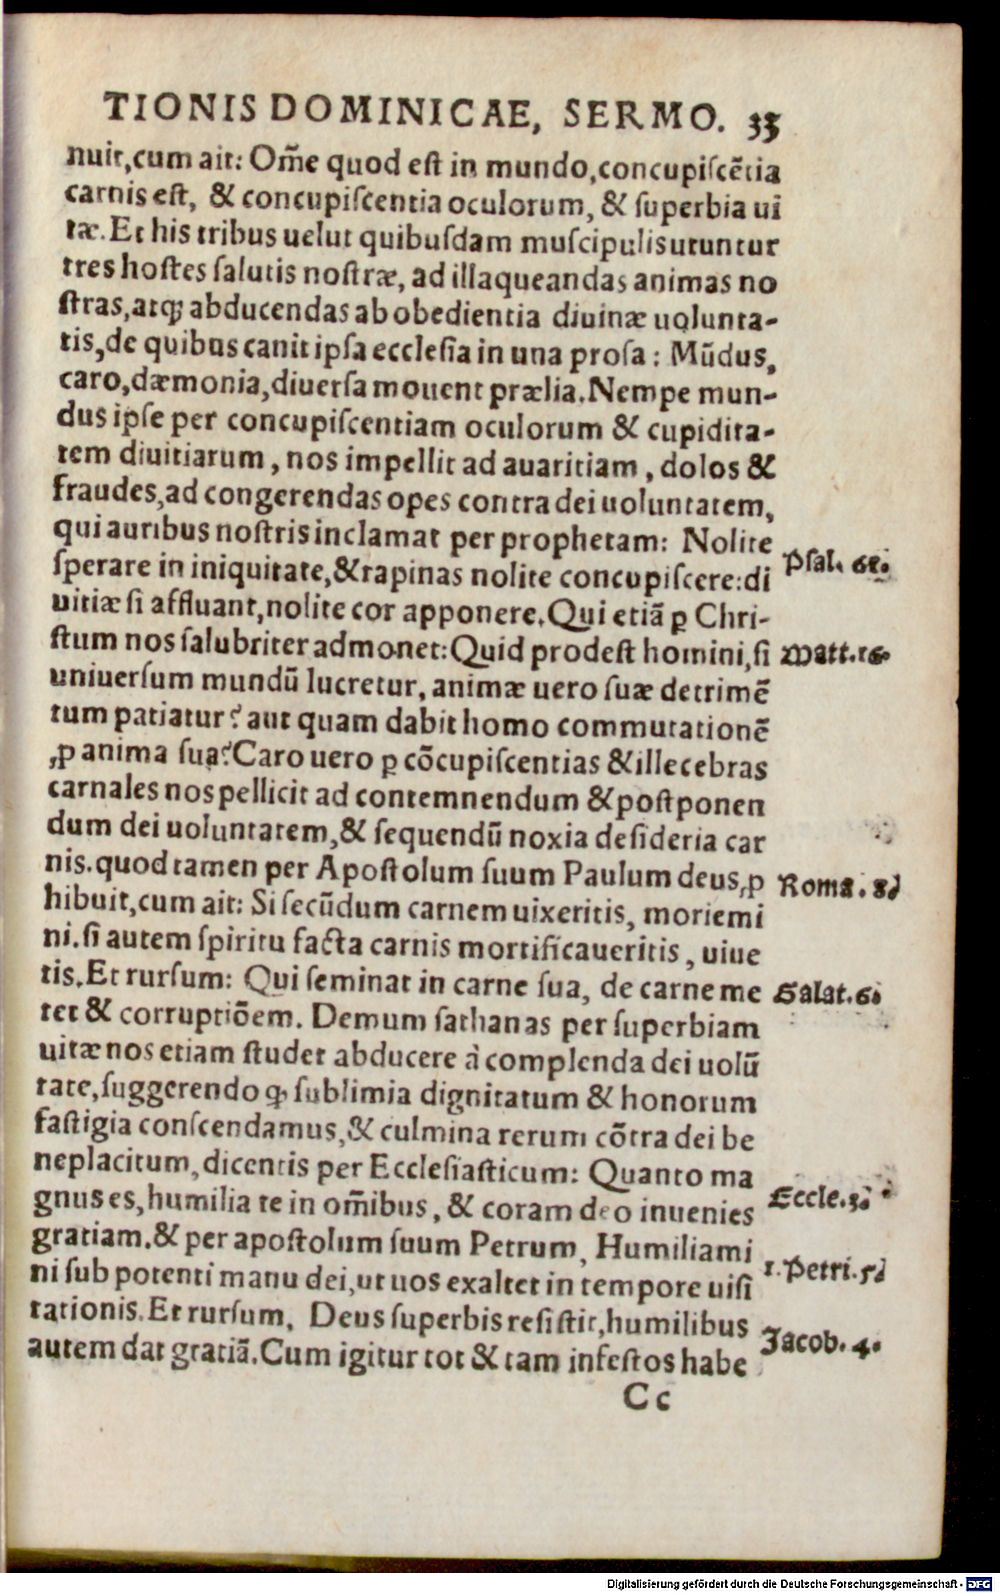 TIONIS DOMINICAE, SERMO. 35
nuit,cum ait: Om̃e quod est in mundo,concupiscẽtia
carnis est, & concupiscentia oculorum, & superbia ui
tæ. Et his tribus uelut quibusdam muscipulis utuntur
tres hostes salutis nostræ, ad illaqueandas animas no
stras,atq; abducendas ab obedientia diuinæ uolunta-
tis,de quibus canit ipsa ecclesia in una prosa: Mũdus,
caro,dæmonia,diuersa mouent prælia. Nempe mun-
dus ipse per concupiscentiam oculorum & cupidita-
tem diuitiarum, nos impellit ad auaritiam, dolos &
fraudes,ad congerendas opes contra dei uoluntatem,
qui auribus nostris inclamat per prophetam: Nolite
sperare in iniquitate,& rapinas nolite concupiscere:di Psal. 61.
uitiæ si affluant,nolite cor apponere. Qui etiã ꝑ Chri-
stum nos salubriter admonet: Quid prodest homini,si Matt.16.
uniuersum mundũ lucretur, animæ uero suæ detrimẽ
tum patiatur? aut quam dabit homo commutationẽ
ꝓ anima sua? Caro uero ꝑ cõcupiscentias & illecebras
carnales nos pellicit ad contemnendum & postponen
dum dei uoluntatem,& sequendũ noxia desideria car
nis. quod tamen per Apostolum suum Paulum deus ꝓ Roma. 8.
hibuit,cum ait: Si secũdum carnem uixeritis, moriemi
ni. si autem spiritu facta carnis mortificaueritis, uiue
tis. Et rursum: Qui seminat in carne sua, de carne me Galat.6.
tet & corruptiõem. Demum sathanas per superbiam
uitæ nos etiam studet abducere à complenda dei uolũ
tate,suggerendo ꝙ sublimia dignitatum & honorum
fastigia conscendamus,& culmina rerum cõtra dei be
neplacitum, dicentis per Ecclesiasticum: Quanto ma
gnus es,humilia te in om̃ibus, & coram deo inuenies Eccle.3.
gratiam. & per apostolum suum Petrum, Humiliami
ni sub potenti manu dei,ut uos exaltet in tempore uisi 1. Petri.5.
tationis. Et rursum. Deus superbis resistit,humilibus
autem dat gratiã. Cum igitur tot & tam infestos habe Jacob. 4.
Cc
Digitalisierung gefördert durch die Deutsche Forschungsgemeinschaft - DFG